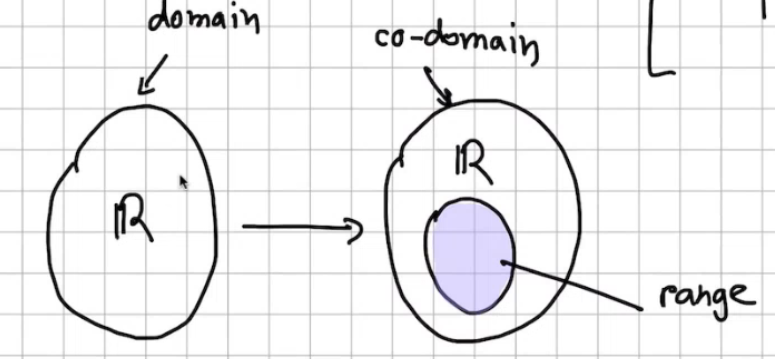 domain
co-domain
ℝ
ℝ
range